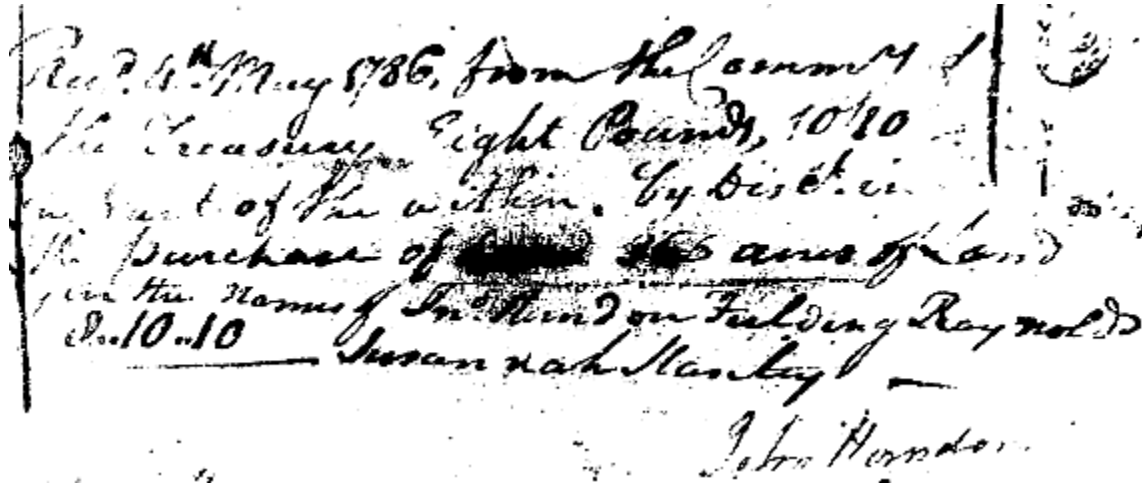 Recd. 4th May 1786, from the Commrs of
the Treasury Eight Pounds, 10/10
in part of the within, by Disct. in
the purchase of acres of Land
in the names of Jno Herndon Fielding Raynolds
8..10..10 Susannah
John Herndon